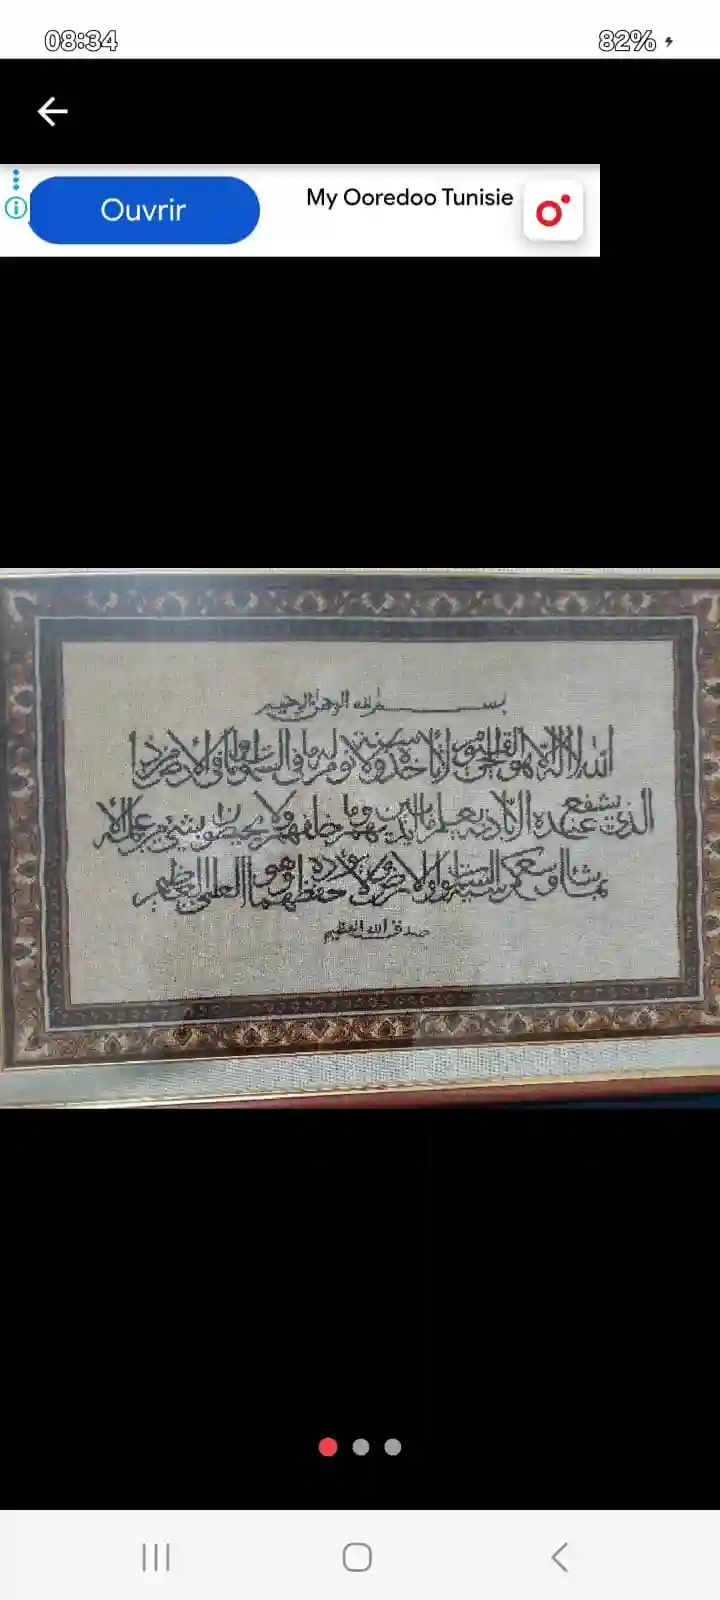 08:34
82%
Ouvrir
My Ooredoo Tunisie
بسم الله الرحمن الرحيم
الله لا اله الا هو الحي القيوم لا تأخذه سنة ولا نوم له ما في السموات وما في الارض من ذا
الذي يشفع عنده الا باذنه يعلم ما بين ايديهم وما خلفهم ولا يحيطون بشيء من علمه الا
بما شاء وسع كرسيه السموات والارض ولا يؤده حفظهما وهو العلي العظيم
صدق الله العظيم